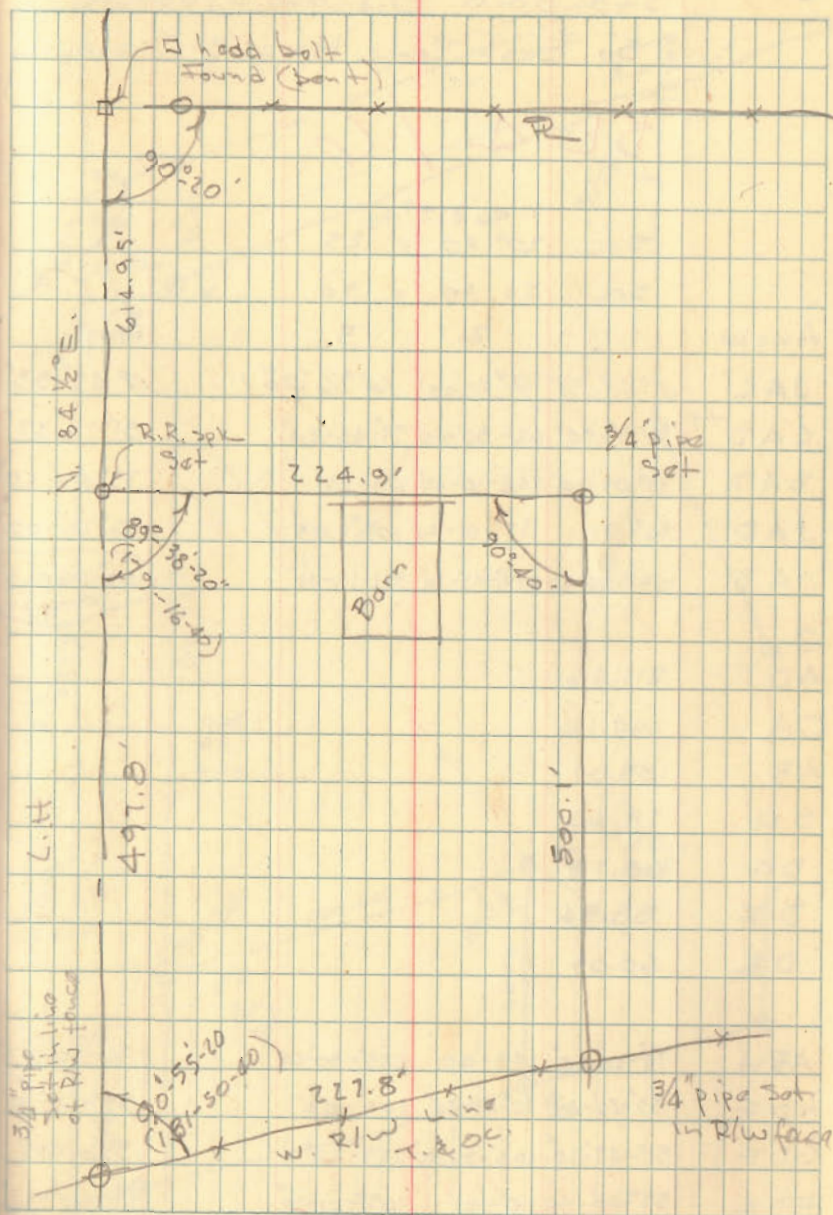 □ head bolt
Found (bent)
P
90°-20'
614.95'
N. 84 ½° E.
R.R. spk
Set
224.9'
3/4" pipe
Set
89°-38'-20"
(179-16-40)
90°-40'
Barn
L.H
497.8'
500.1'
3/4" pipe
Set in line
of R/W fence
90°-55'-20
(181-50-40)
227.8'
W. R/W Line
T. & O.C.
3/4" pipe Set
in R/W fence